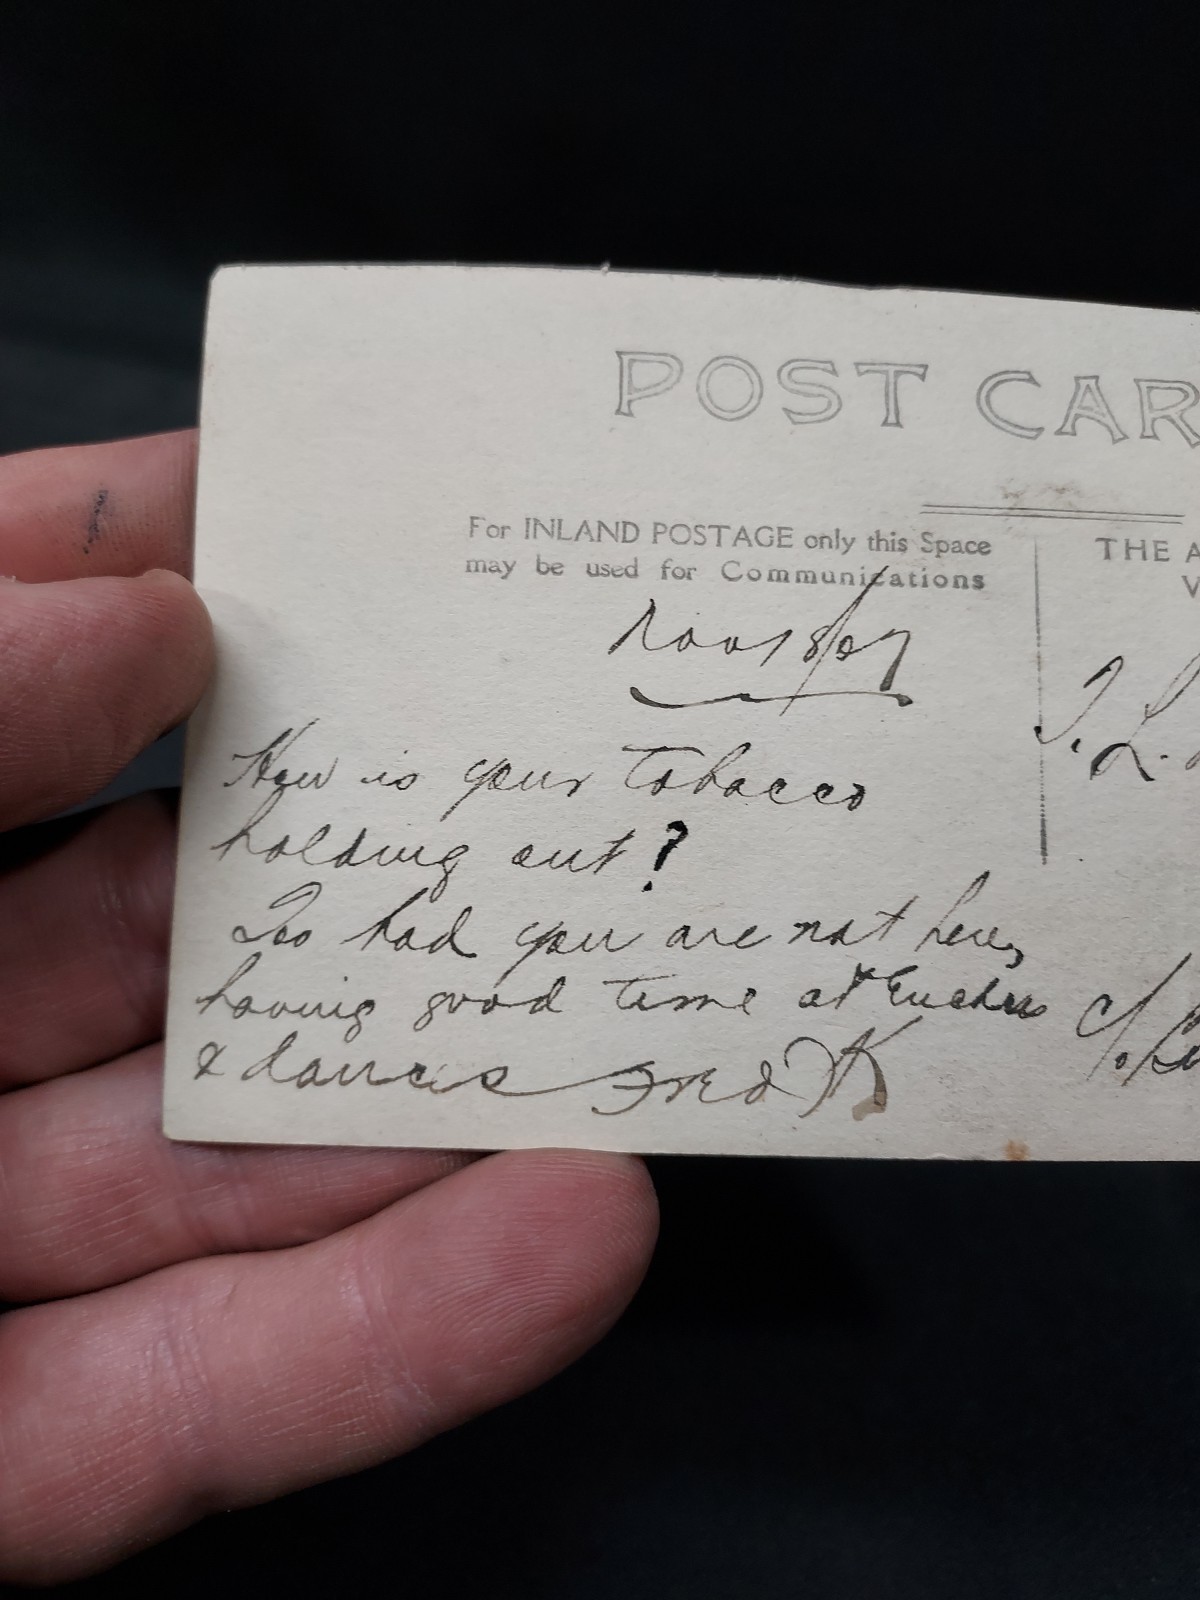 POST CAR
For INLAND POSTAGE only this Space
may be used for Communications
THE A
V
Nov 18/07
How is your tobacco
holding out?
Too bad you are not here,
having good time at Euchres
& dances Fred K
T. L.
c/o